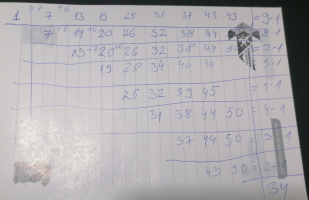 1 +6 7 +6 13 19 25 31 37 43 49 = 9-1
7 14 20 26 32 38 44 = 8-1
13 20 26 32 38 44 50 = 7-1
19 26 34 40 46 = 5-1
25 32 39 45 = 4-1
31 38 44 50 = 4-1
37 44 50 = 3-1
43 50 = 2-1
34